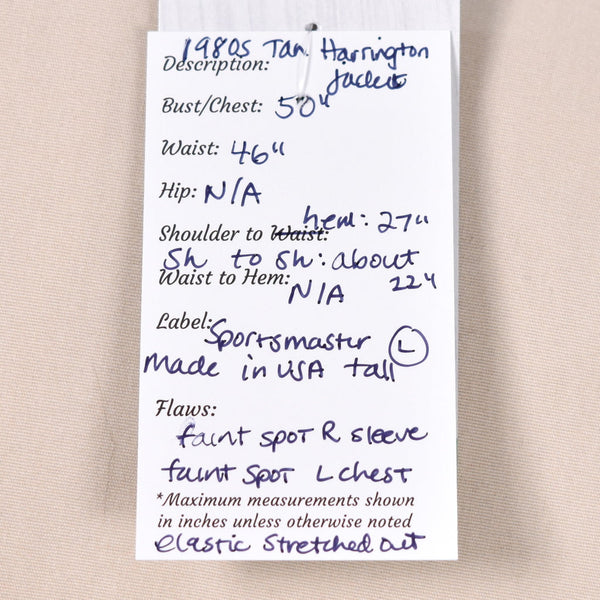 1980s Tan Harrington
Description: Jacket
Bust/Chest: 50"
Waist: 46"
Hip: N/A
Shoulder to Waist: hem: 27"
Sh to sh: about 22"
Waist to Hem: N/A
Label: Sportsmaster L
made in USA tall
Flaws:
faint spot R sleeve
faint spot L chest
*Maximum measurements shown
in inches unless otherwise noted
elastic stretched out